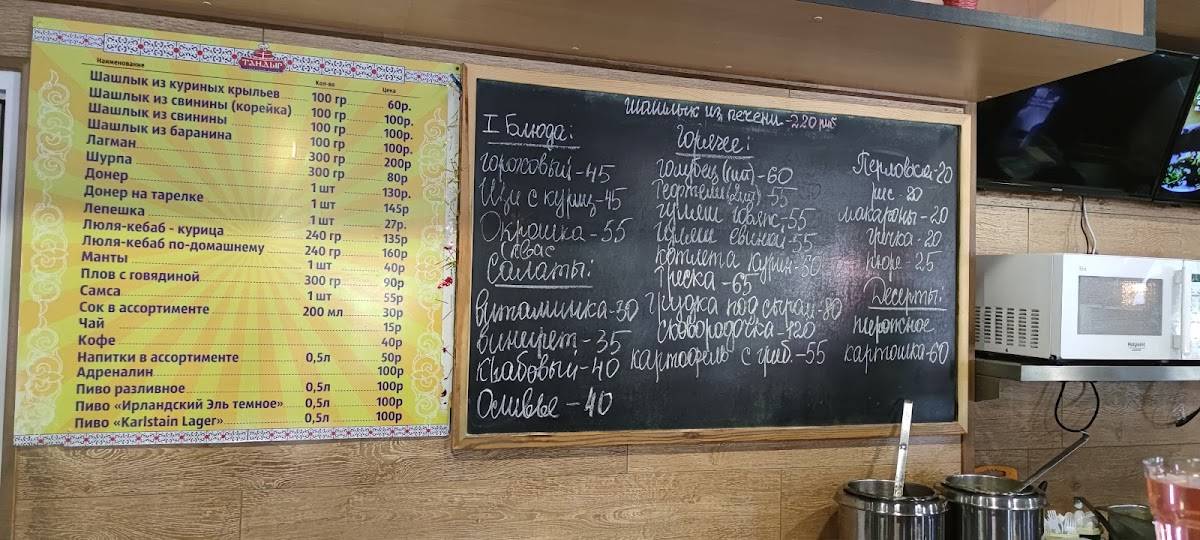 ТАНДЫР
Наименование Кол-во Цена
Шашлык из куриных крыльев 100 гр 60р.
Шашлык из свинины (корейка) 100 гр 100р.
Шашлык из свинины 100 гр 100р.
Шашлык из баранина 100 гр 100р.
Лагман 300 гр 200р
Шурпа 300 гр 80р
Донер 1 шт 130р.
Донер на тарелке 1 шт 145р
Лепешка 1 шт 27р.
Люля-кебаб - курица 240 гр 135р
Люля-кебаб по-домашнему 240 гр 160р
Манты 1 шт 40р
Плов с говядиной 300 гр 90р
Самса 1 шт 55р
Сок в ассортименте 200 мл 30р
Чай 15р
Кофе 40р
Напитки в ассортименте 0,5л 50р
Адреналин 100р
Пиво разливное 0,5л 100р
Пиво «Ирландский Эль темное» 0,5л 100р
Пиво «Karlstain Lager» 0,5л 100р
Шашлык из печени - 220 руб
I Блюда:
гороховый - 45
Щи с куриц - 45
Окрошка - 55
квас
Салаты:
витаминка - 30
винегрет - 35
Крабовый - 40
Оливье - 40
Горячее:
голубец (1шт) - 60
55
гуляш говяж - 55
гуляш свиной - 55
котлета курин - 50
Треска - 65
грудка под сыром - 80
сковородочка - 120
картофель с гриб. - 55
Перловка - 20
рис - 20
макароны - 20
гречка - 20
пюре - 25
Десерты:
пирожное
картошка - 60